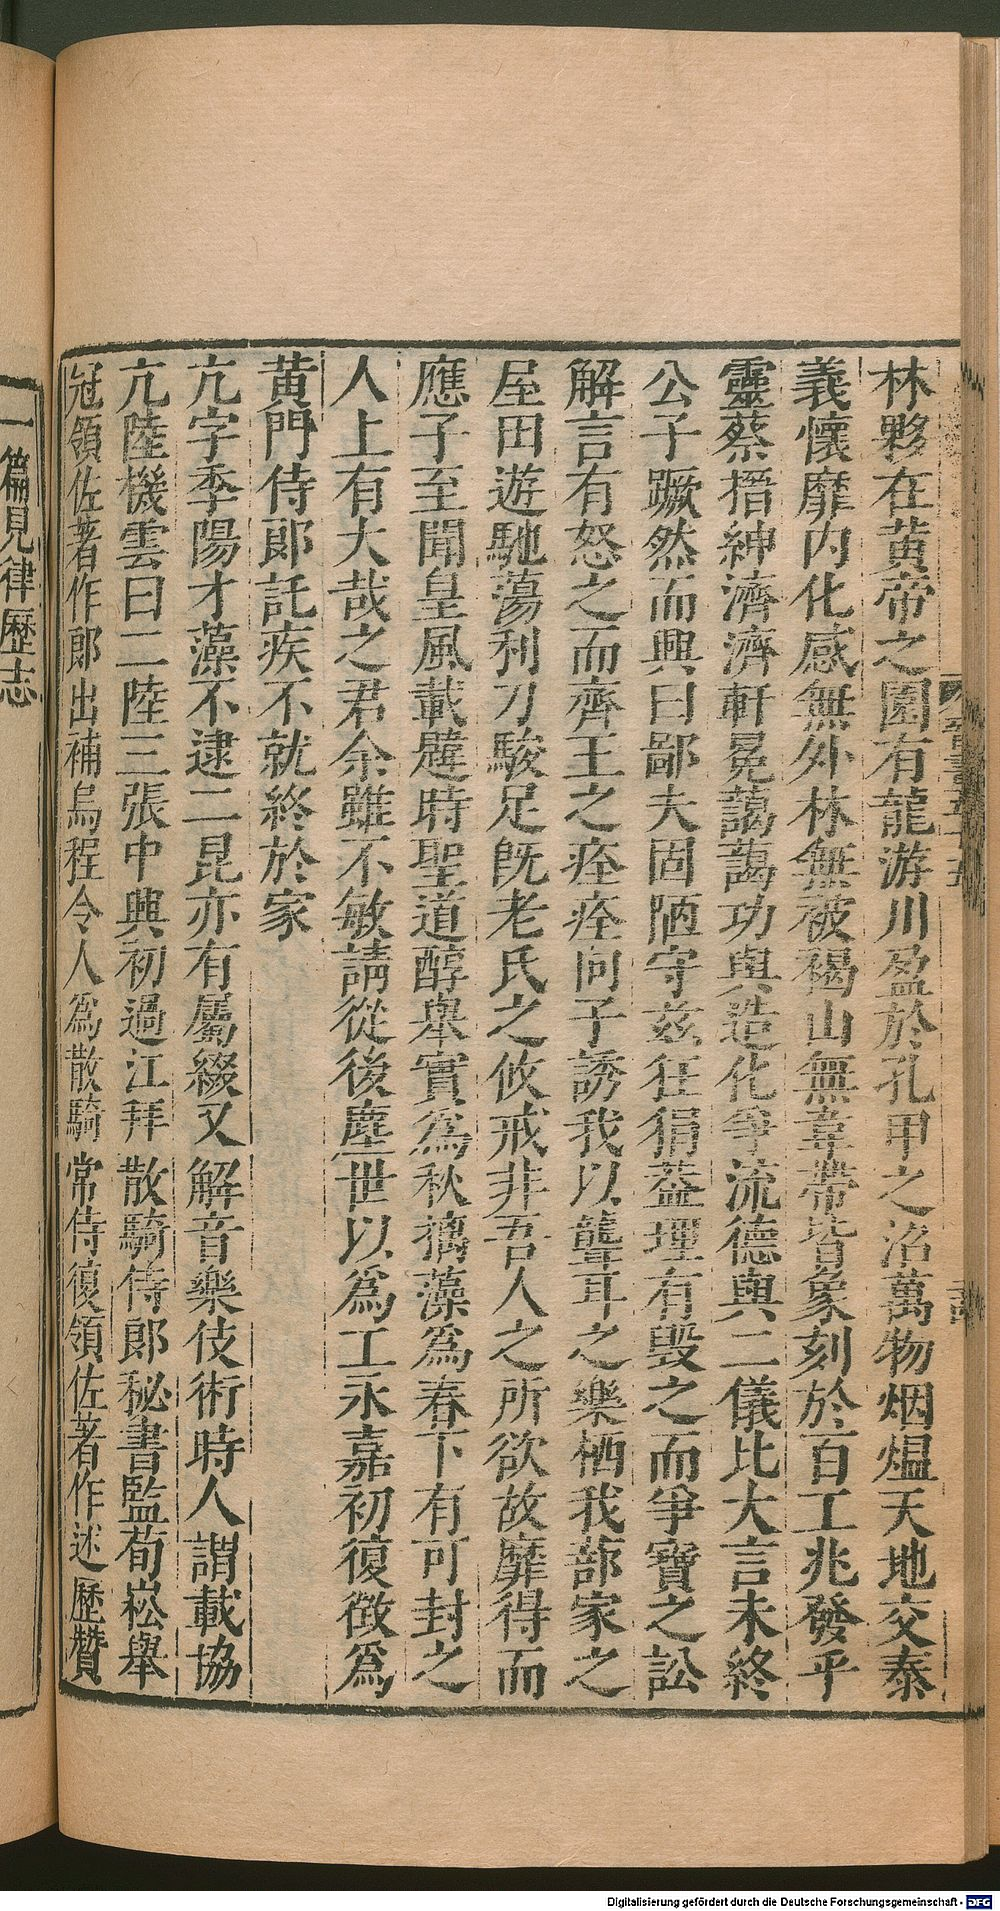 林夥在黄帝之園有龍游川盈於孔甲之沼萬物烟熅天地交泰
義懷靡内化感無外林無被褐山無韋帶皆象刻於百工兆發乎
靈蔡搢紳濟濟軒冕藹藹功與造化爭流德與二儀比大言未終
公子蹶然而興曰鄙夫固陋守兹狂狷葢理有毁之而爭寶之訟
解言有怒之而齊王之痊痊向子誘我以聾耳之樂栖我蔀家之
屋田遊馳蕩利刀駿足旣老氏之攸戒非吾人之所欲故靡得而
應子至聞皇風載韙時聖道醇舉實爲秋摛藻爲春下有可封之
人上有大哉之君余雖不敏請從後塵世以爲工永嘉初復徴爲
黄門侍郎託疾不就終於家
亢字季陽才藻不逮二昆亦有屬綴又解音樂伎術時人謂載協
亢陸機雲曰二陸三張中興初過江拜散騎侍郎秘書監荀崧舉
冠領佐著作郎出補烏程令人爲散騎常侍復領佐著作述歷贊
一篇見律歷志
Digitalisierung gefördert durch die Deutsche Forschungsgemeinschaft - DFG